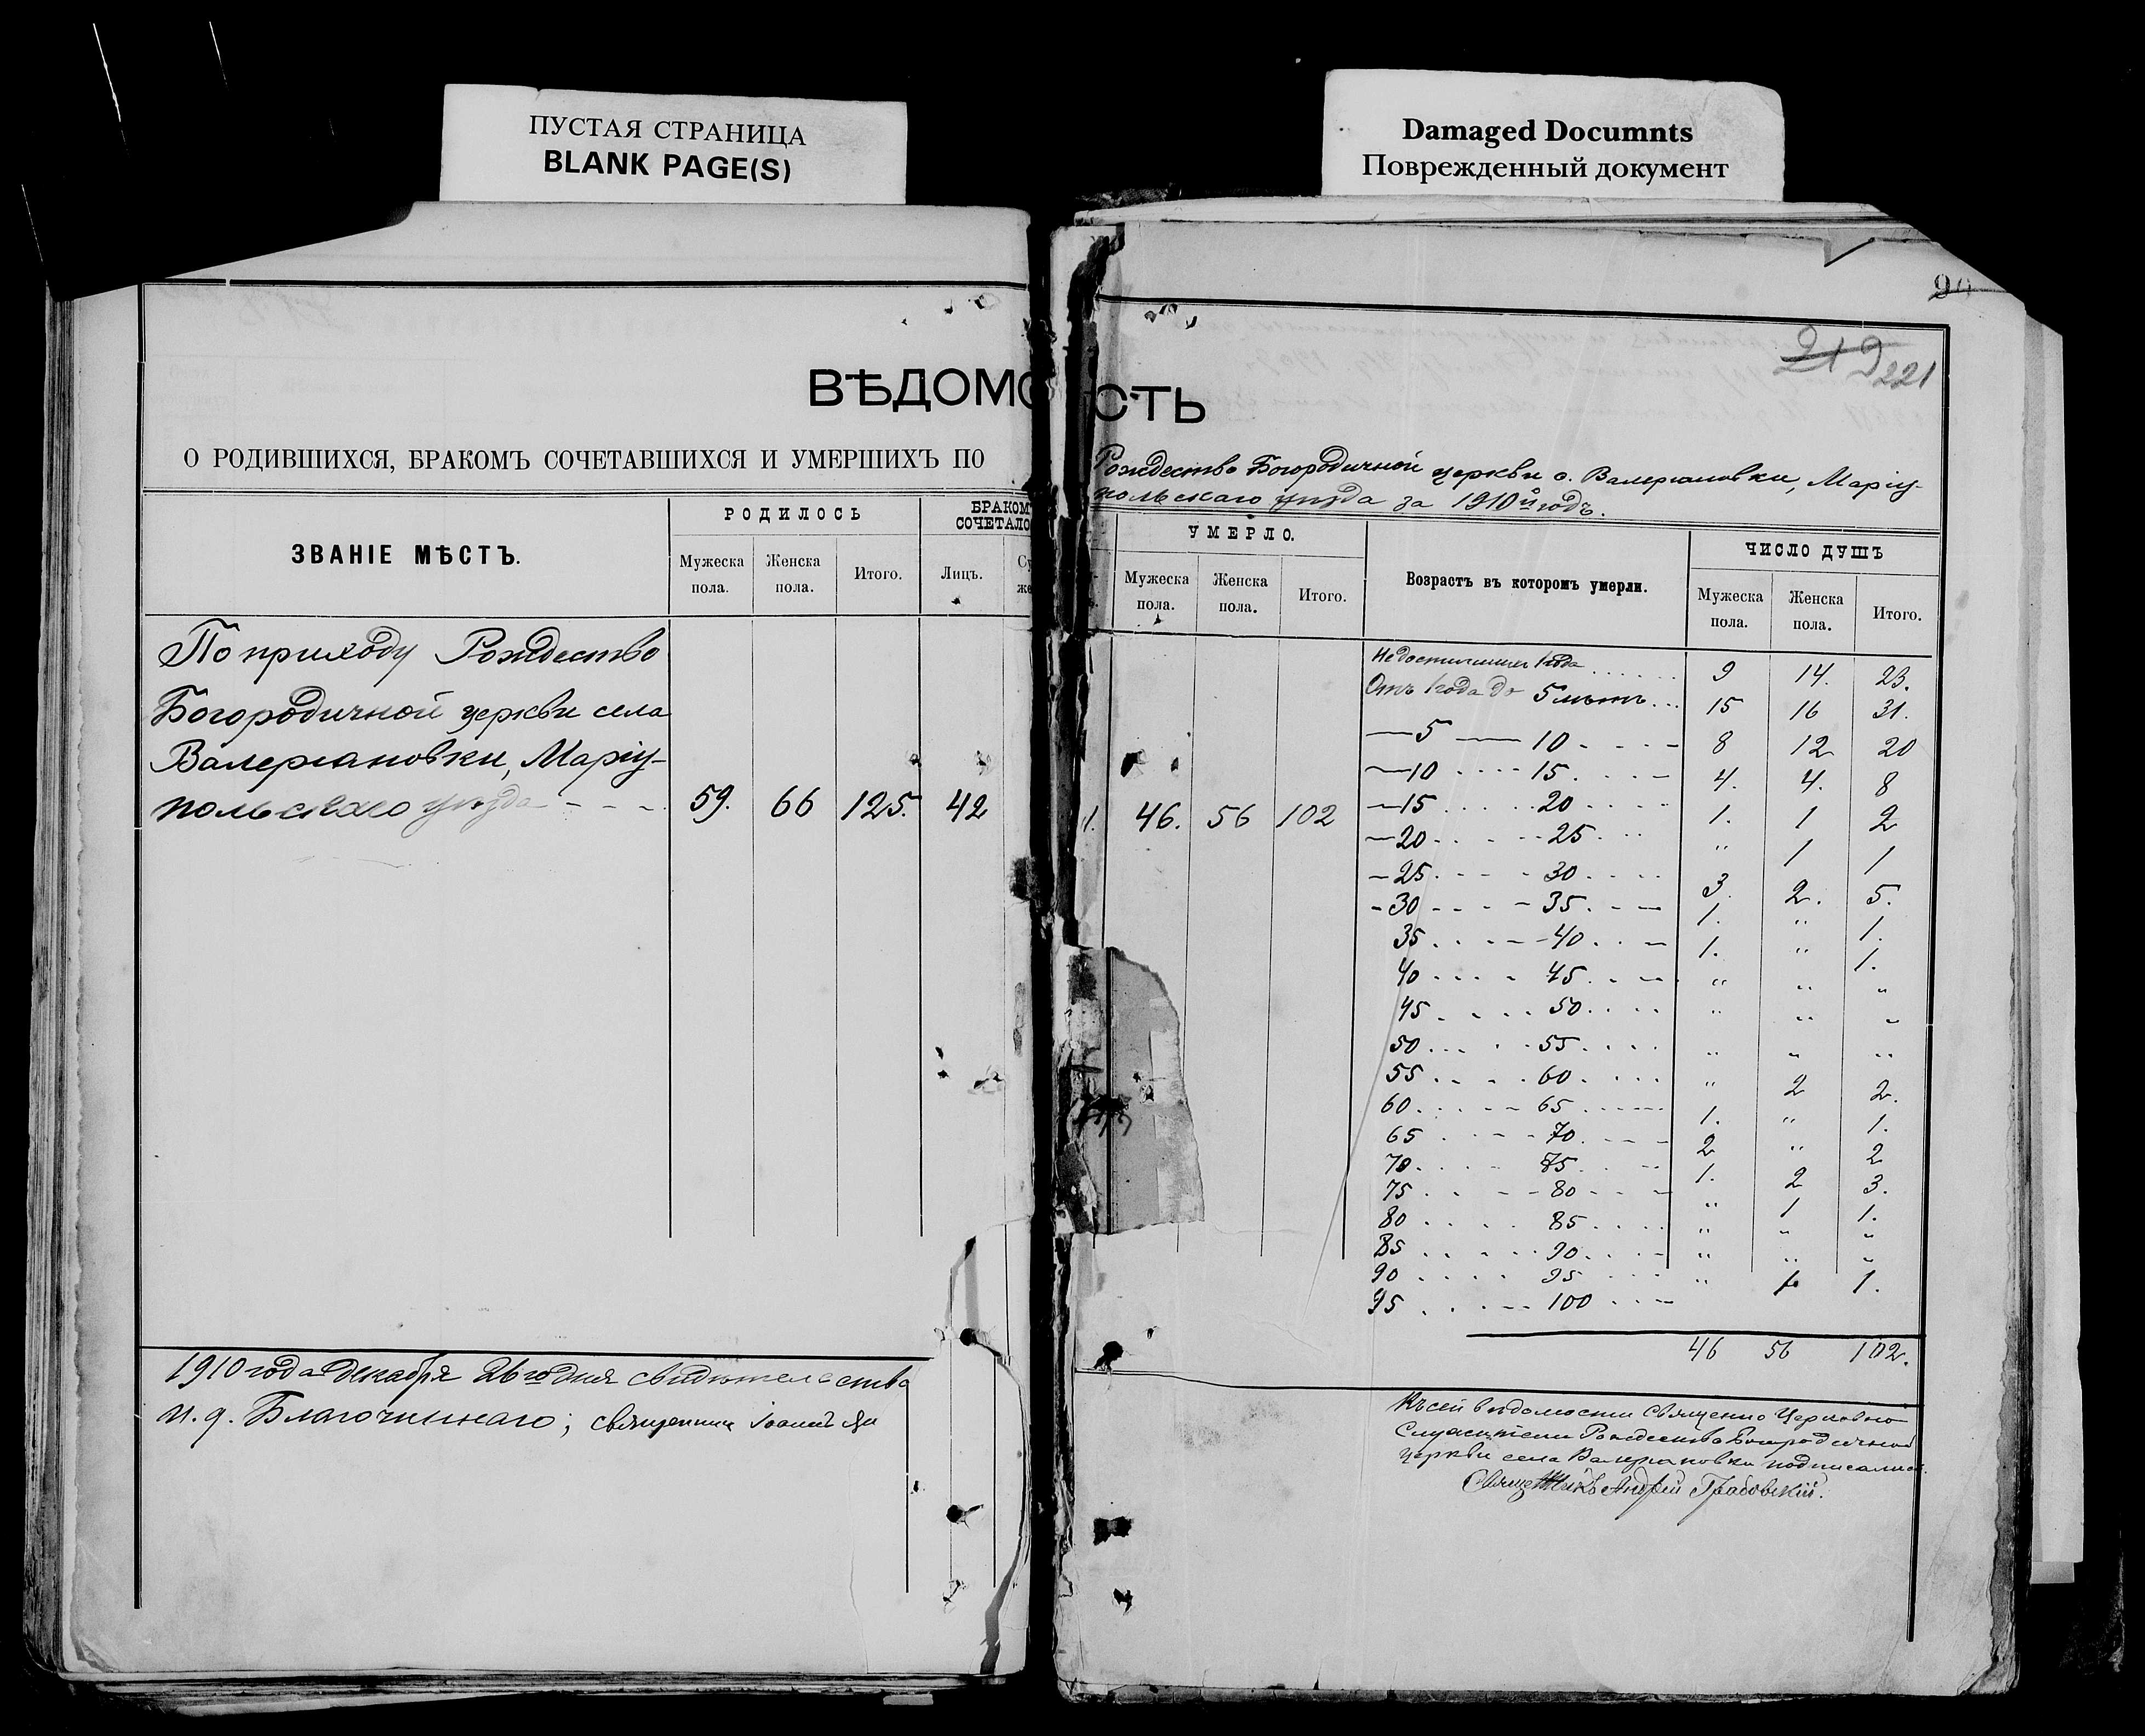 ПУСТАЯ СТРАНИЦА
BLANK PAGE(S)
Damaged Documnts
Поврежденный документ
221
ВѢДОМОСТЬ
О РОДИВШИХСЯ, БРАКОМЪ СОЧЕТАВШИХСЯ И УМЕРШИХЪ ПО
Рождество Богородичной церкви с. Валериановки, Маріу-
польскаго уѣзда за 1910й годъ.
ЗВАНІЕ МѢСТЪ.
РОДИЛОСЬ
Мужеска пола.
Женска пола.
Итого.
БРАКОМ
СОЧЕТАЛО
Лицъ.
УМЕРЛО.
Мужеска пола.
Женска пола.
Итого.
Возрастъ въ которомъ умерли.
ЧИСЛО ДУШЪ
Мужеска пола.
Женска пола.
Итого.
По приходу Рождество
Богородичной церкви села
Валериановки, Маріу-
польскаго уѣзда - - - 59. 66 125. 42
1. 46. 56 102
Недостигших 1 года ...... 9 14. 23.
Отъ 1 года до 5 лѣтъ ... 15 16 31.
— 5 — 10 - - - - 8 12 20
— 10 .... 15. - - - 4. 4. 8
— 15 ..... 20 .... 1. 1 2
— 20 .... 25 ... " 1 1
— 25 .... 30 .... 3. 2. 5.
- 30 - - - - 35. - - 1. " 1.
35 .... 40 ... 1. " 1.
40 .... 45 ... " " "
45 .... 50 .... " " "
50 .... 55 .... " " "
55 .... 60 .... " 2 2.
60 .... 65 ..... 1. " 1.
65 .... 70 .... 2 " 2
70 .... 75 ... 1. 2 3.
75 .... 80 ... " 1 1.
80 .... 85 .... " " "
85 .... 90 .... " " "
90 .... 95 ... " 1 1.
95 .... 100 ...
46 56 102.
1910 года Декабря 26го дня свидѣтельство
И. д. Благочиннаго; священник Іоаннъ
Къ сей вѣдомости Священно Церковно
Служители Рождество Богородичной
церкви села Валериановки подписались
Священникъ Андрей Грабовскій.